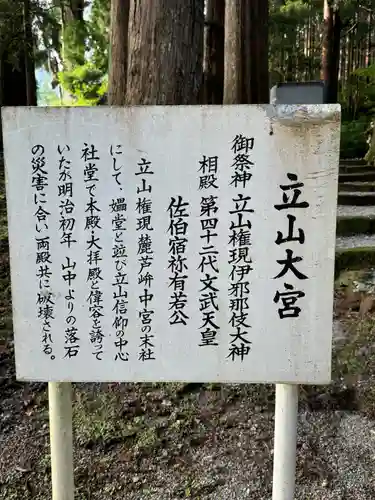 立山大宮
御祭神 立山権現伊邪那岐大神
相殿 第四十二代文武天皇
佐伯宿祢有若公
立山権現麓芦峅中宮の末社
にして、媼堂と並び立山信仰の中心
社堂で本殿・大拝殿と偉容を誇って
いたが明治初年 山中よりの落石
の災害に合い両殿共に破壊される。